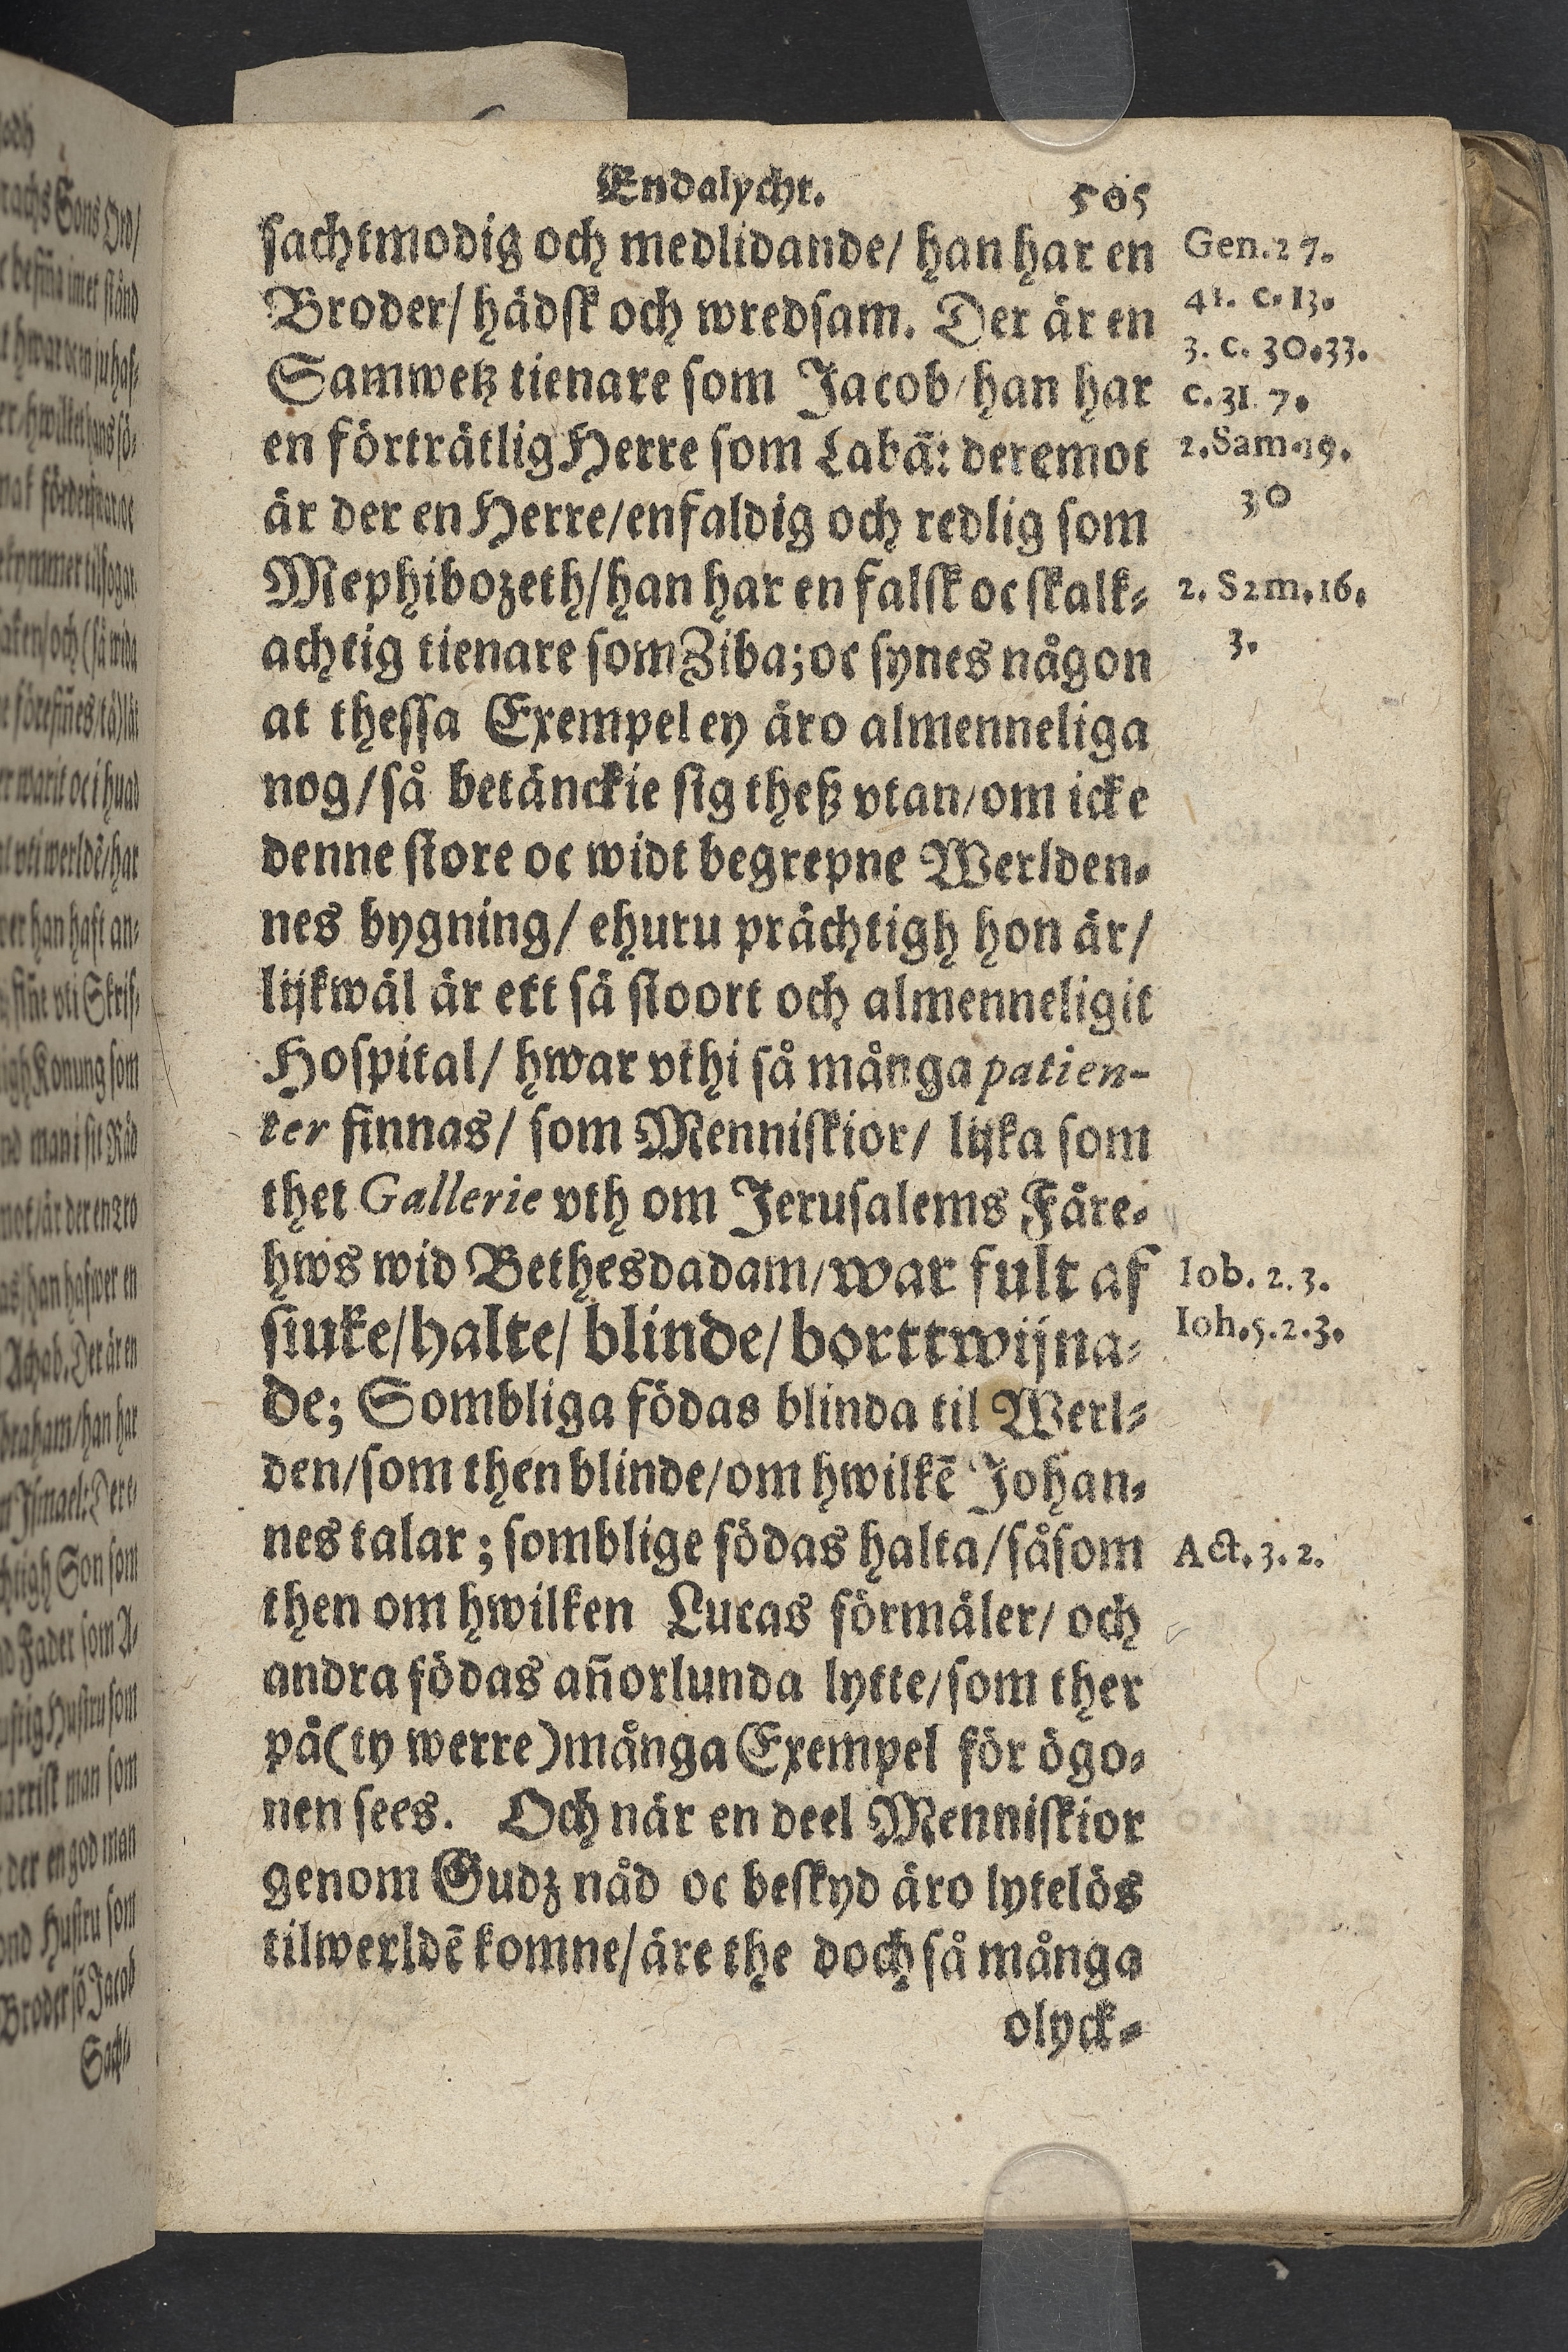 Endalycht. 505
sachtmodig och medlidande/ han har en
Broder/ hädsk och wredsam. Der är en
Samwetz tienare som Jacob/ han har
en förträtlig Herre som Labā: deremot
är der en Herre/enfaldig och redlig som
Mephibozeth/han har en falsk oc skalk-
achtig tienare som Ziba; oc synes någon
at thessa Exempel ey äro almenneliga
nog/så betänckie sig theß vtan/om icke
denne store oc widt begrepne Werlden-
nes bygning/ ehuru prächtigh hon är/
lijkwäl är ett så stoort och almenneligit
Hospital/ hwar vthi så många patien-
ter finnas/ som Menniskior/ lijka som
thet Gallerie vth om Jerusalems Fåre-
hws wid Bethesdadam/war fult af
siuke/halte/ blinde/ borttwijna-
de; Sombliga födas blinda til Werl-
den/som then blinde/om hwilkē Johan-
nes talar; somblige födas halta/såsom
then om hwilken Lucas förmäler/ och
andra födas añorlunda lytte/som ther
på (ty werre) många Exempel för ögo-
nen sees. Och när en deel Menniskior
genom Gudz nåd oc beskyd äro lytelös
til werldē komne/äre the doch så många
olyck-
Gen.27.
41. c.13.
3. c. 30.33.
c.31 7.
2.Sam.19.
30
2. S2m.16.
3.
Iob. 2. 3.
Ioh.5.2.3.
Act.3.2.